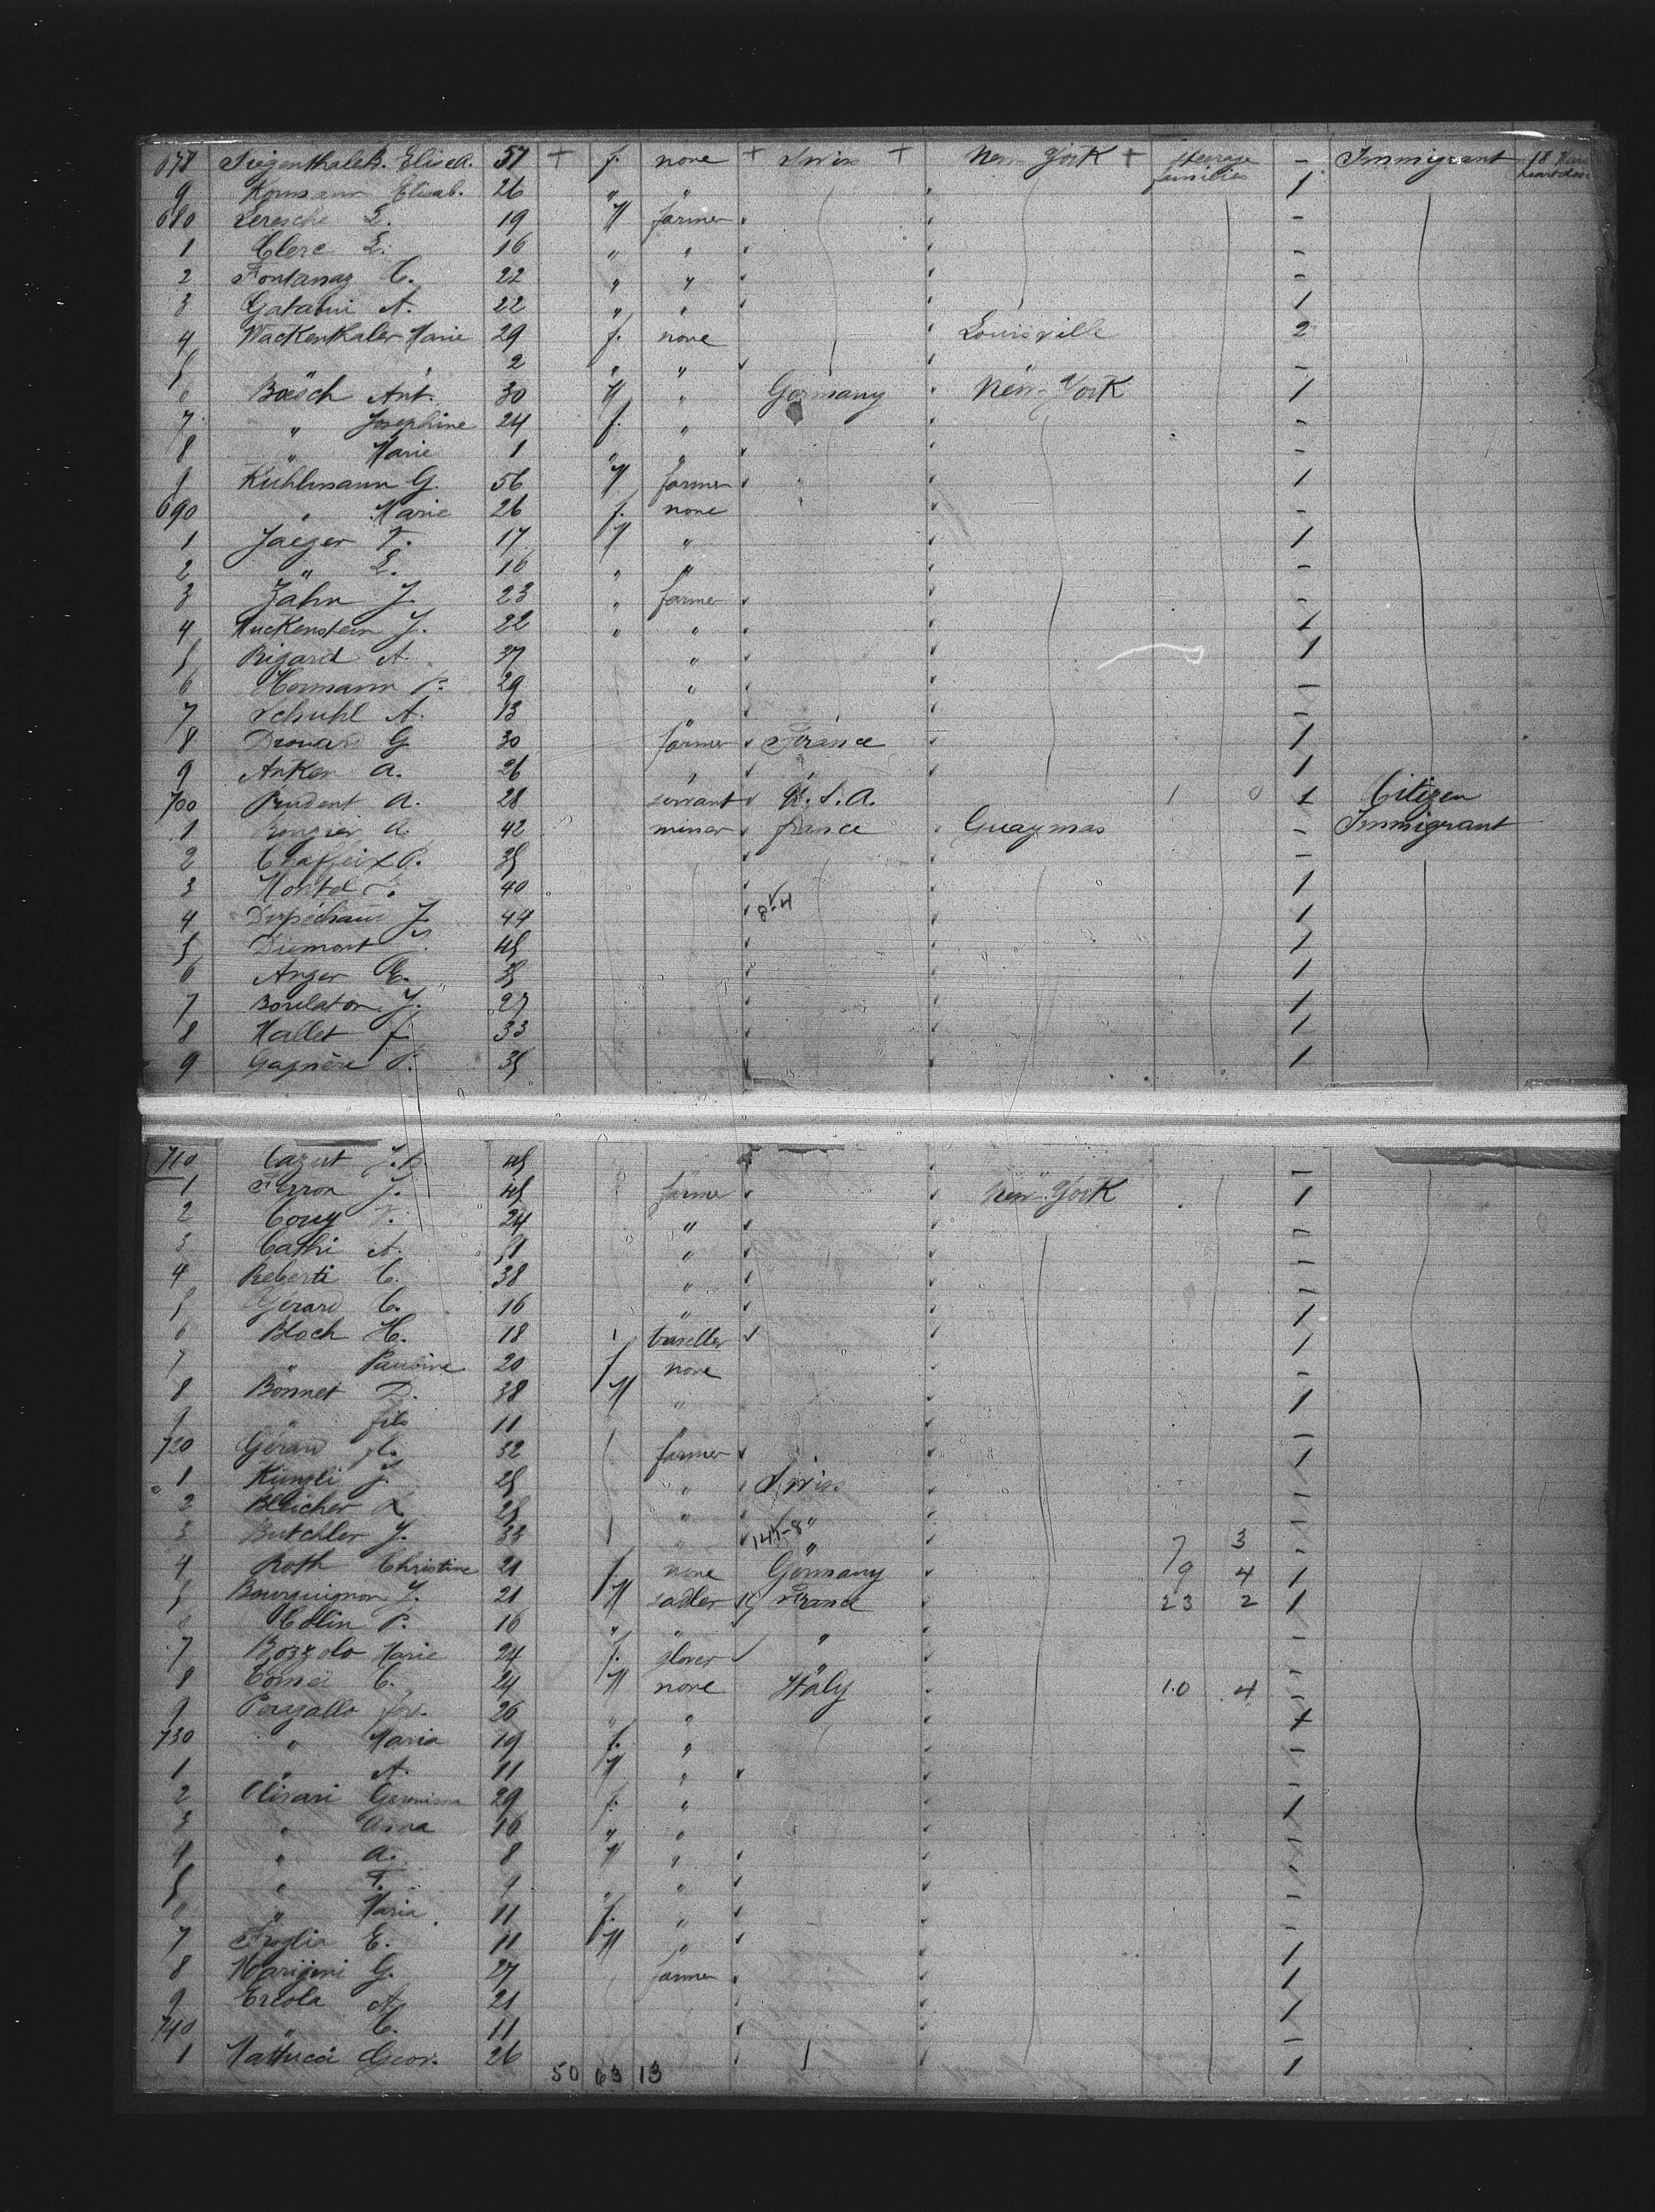 678 Siegenthaler Elise 57 + f. none + Swiss + New-York + steerage families - Immigrant 18 heart dis
9 Kormann Elisab. 26 " " 1
680 Leresche L. 19 M farmer -
1 Clerc L. 16 " " -
2 Fontanaz C. 22 " " -
3 A. 22 " " 1
4 Wackenthaler Marie 29 f. none Louisville 2
5 " 2 " " " -
6 Bœsch Ant. 30 M " Germany New-York 1
7 " Josephine 24 f. " -
8 " Marie 1 " " -
9 Kuhlmann G. 56 M farmer 1
690 " Marie 26 f. none -
1 Jaeger V. 17 M " 1
2 " L. 16 " " -
3 Jahn J. 23 " farmer -
4 Muckenstein J. 22 " " 1
5 Bigard A. 37 " 1
6 Hermann P. 29 " -
7 Schuhl A. 13 " -
8 Drouard G. 30 farmer France 1
9 Anken A. 26 " " 1
700 Prudent A. 28 servant U.S.A. 1 0 1 Citizen
1 Rougier A. 42 miner France Guaymas - Immigrant
2 P. 35 -
3 40 1
4 J. 44 8-4 1
5 Dumont 45 1
6 Anger E. 35 1
7 J. 27 1
8 Mallet J. 33 1
9 Gagnère P. 35 1
710 Cazut J.B. 45 -
1 Ferron J. 45 farmer New-York 1
2 Couy 24 " -
3 Cathi A. 51 " -
4 Reberti C. 38 " -
5 Gérard C. 16 " 1
6 Bloch H. 18 traveller 1
7 " Pauline 20 f none -
8 Bonnet D. 38 M " 1
9 " fils 11 " -
720 Gérard 32 farmer 1
1 Kunzli J. 25 " Swiss -
2 Bleicher L 25 " " -
3 Butchler J. 33 " 144-8 " 7 3 -
4 Roth Christine 21 f. none Germany 19 4 1
5 Bourguignon J. 21 M sadler France 23 2 1
6 Colin P. 16 " " " -
7 Bozzolo Marie 24 f. glover " -
8 C. 24 M none Italy 10 4 -
9 Pergallo 26 " " 1
730 " Maria 19 f. " -
1 " A. 11 M " -
2 Olivari 29 f. " 1
3 " Anna 16 " " -
4 " A. 8 M " -
5 " F. " " -
6 " Maria 11 f. " -
7 Froglia E. 11 M " 1
8 G. 27 farmer 1
9 Ercola A. 21 1
740 " C. 11 -
1 Mattucci Geor. 26 1
50 63 13